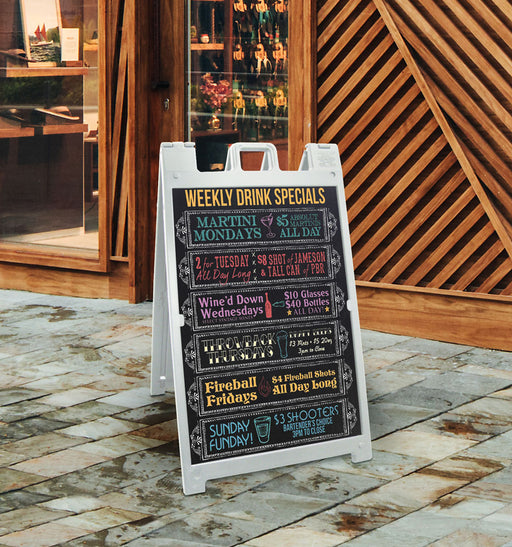 WEEKLY DRINK SPECIALS
MARTINI MONDAYS
$5 ABSOLUTE MARTINIS ALL DAY
2 for TUESDAY
All Day Long
$8 SHOT of JAMESON
& TALL CAN of PBR
Wine'd Down
Wednesdays
SELECT HOUSE WINES
$10 Glasses
$40 Bottles
ALL DAY!
THROWBACK
THURSDAYS
$3 Pints • $5 20oz
3pm to Close
Fireball
Fridays
$4 Fireball Shots
All Day Long
SUNDAY
FUNDAY!
$3 SHOOTERS
BARTENDER'S CHOICE
3PM TO CLOSE